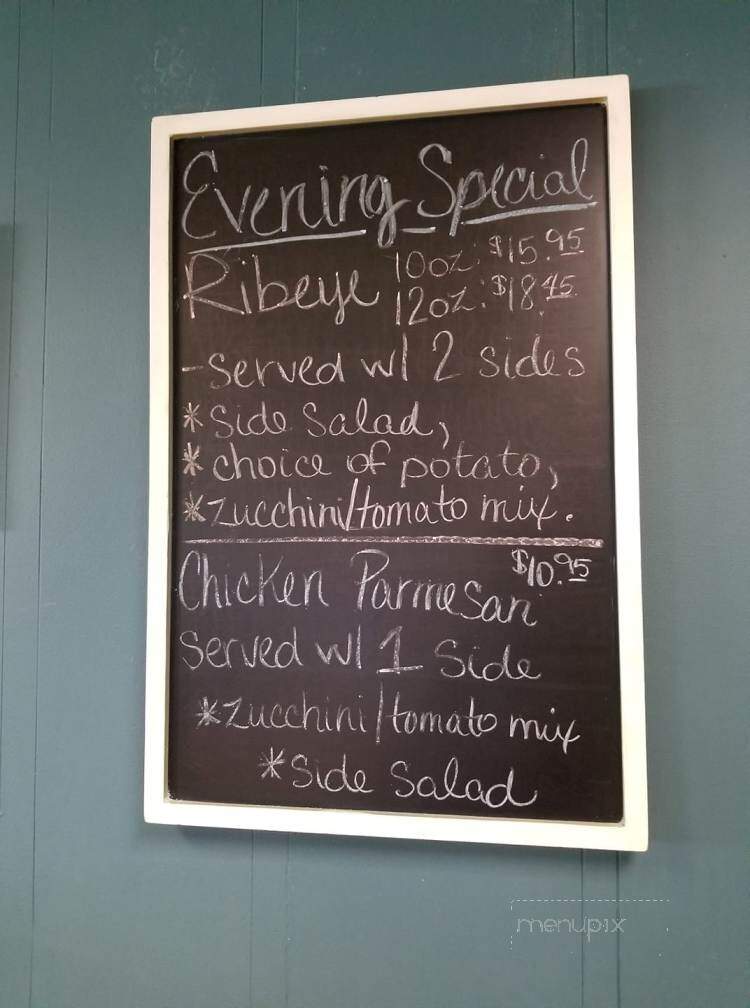 Evening Special
Ribeye 10oz: $15.95
12oz: $18.45
-Served w/ 2 sides
*Side Salad,
*choice of potato,
*zucchini/tomato mix.
$10.95
Chicken Parmesan
Served w/ 1 Side
*zucchini/tomato mix
*Side Salad
menupix